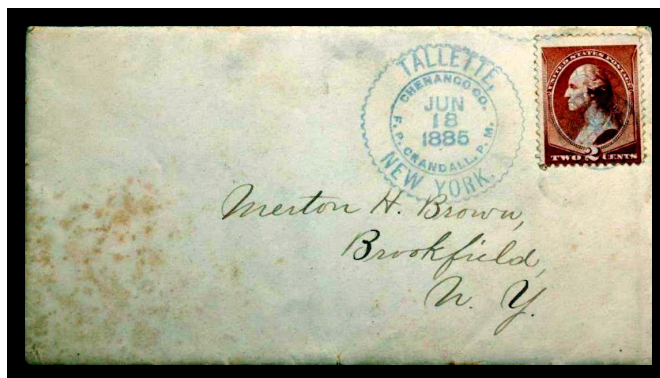 TALLETTE,
CHENANGO CO.
JUN
18
1885
F. P. CRANDALL, P. M.
NEW YORK
UNITED STATES POSTAGE
TWO 2 CENTS
Merton H. Brown,
Brookfield,
N. Y.